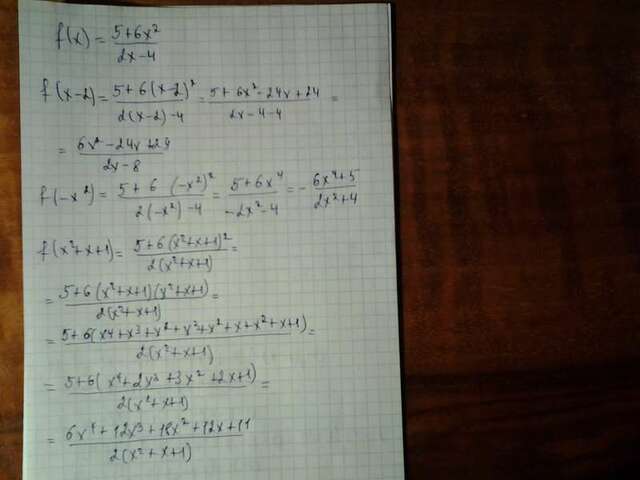 f(x) = (5+6x²)/(2x-4)
f(x-2) = (5+6(x-2)²)/(2(x-2)-4) = (5+6x²-24x+24)/(2x-4-4) =
= (6x²-24x+29)/(2x-8)
f(-x²) = (5+6(-x²)²)/(2(-x²)-4) = (5+6x⁴)/(-2x²-4) = -(6x⁴+5)/(2x²+4)
f(x²+x+1) = (5+6(x²+x+1)²)/(2(x²+x+1)) =
= (5+6(x²+x+1)(x²+x+1))/(2(x²+x+1)) =
= (5+6(x⁴+x³+x²+x³+x²+x+x²+x+1))/(2(x²+x+1)) =
= (5+6(x⁴+2x³+3x²+2x+1))/(2(x²+x+1)) =
= (6x⁴+12x³+18x²+12x+11)/(2(x²+x+1))